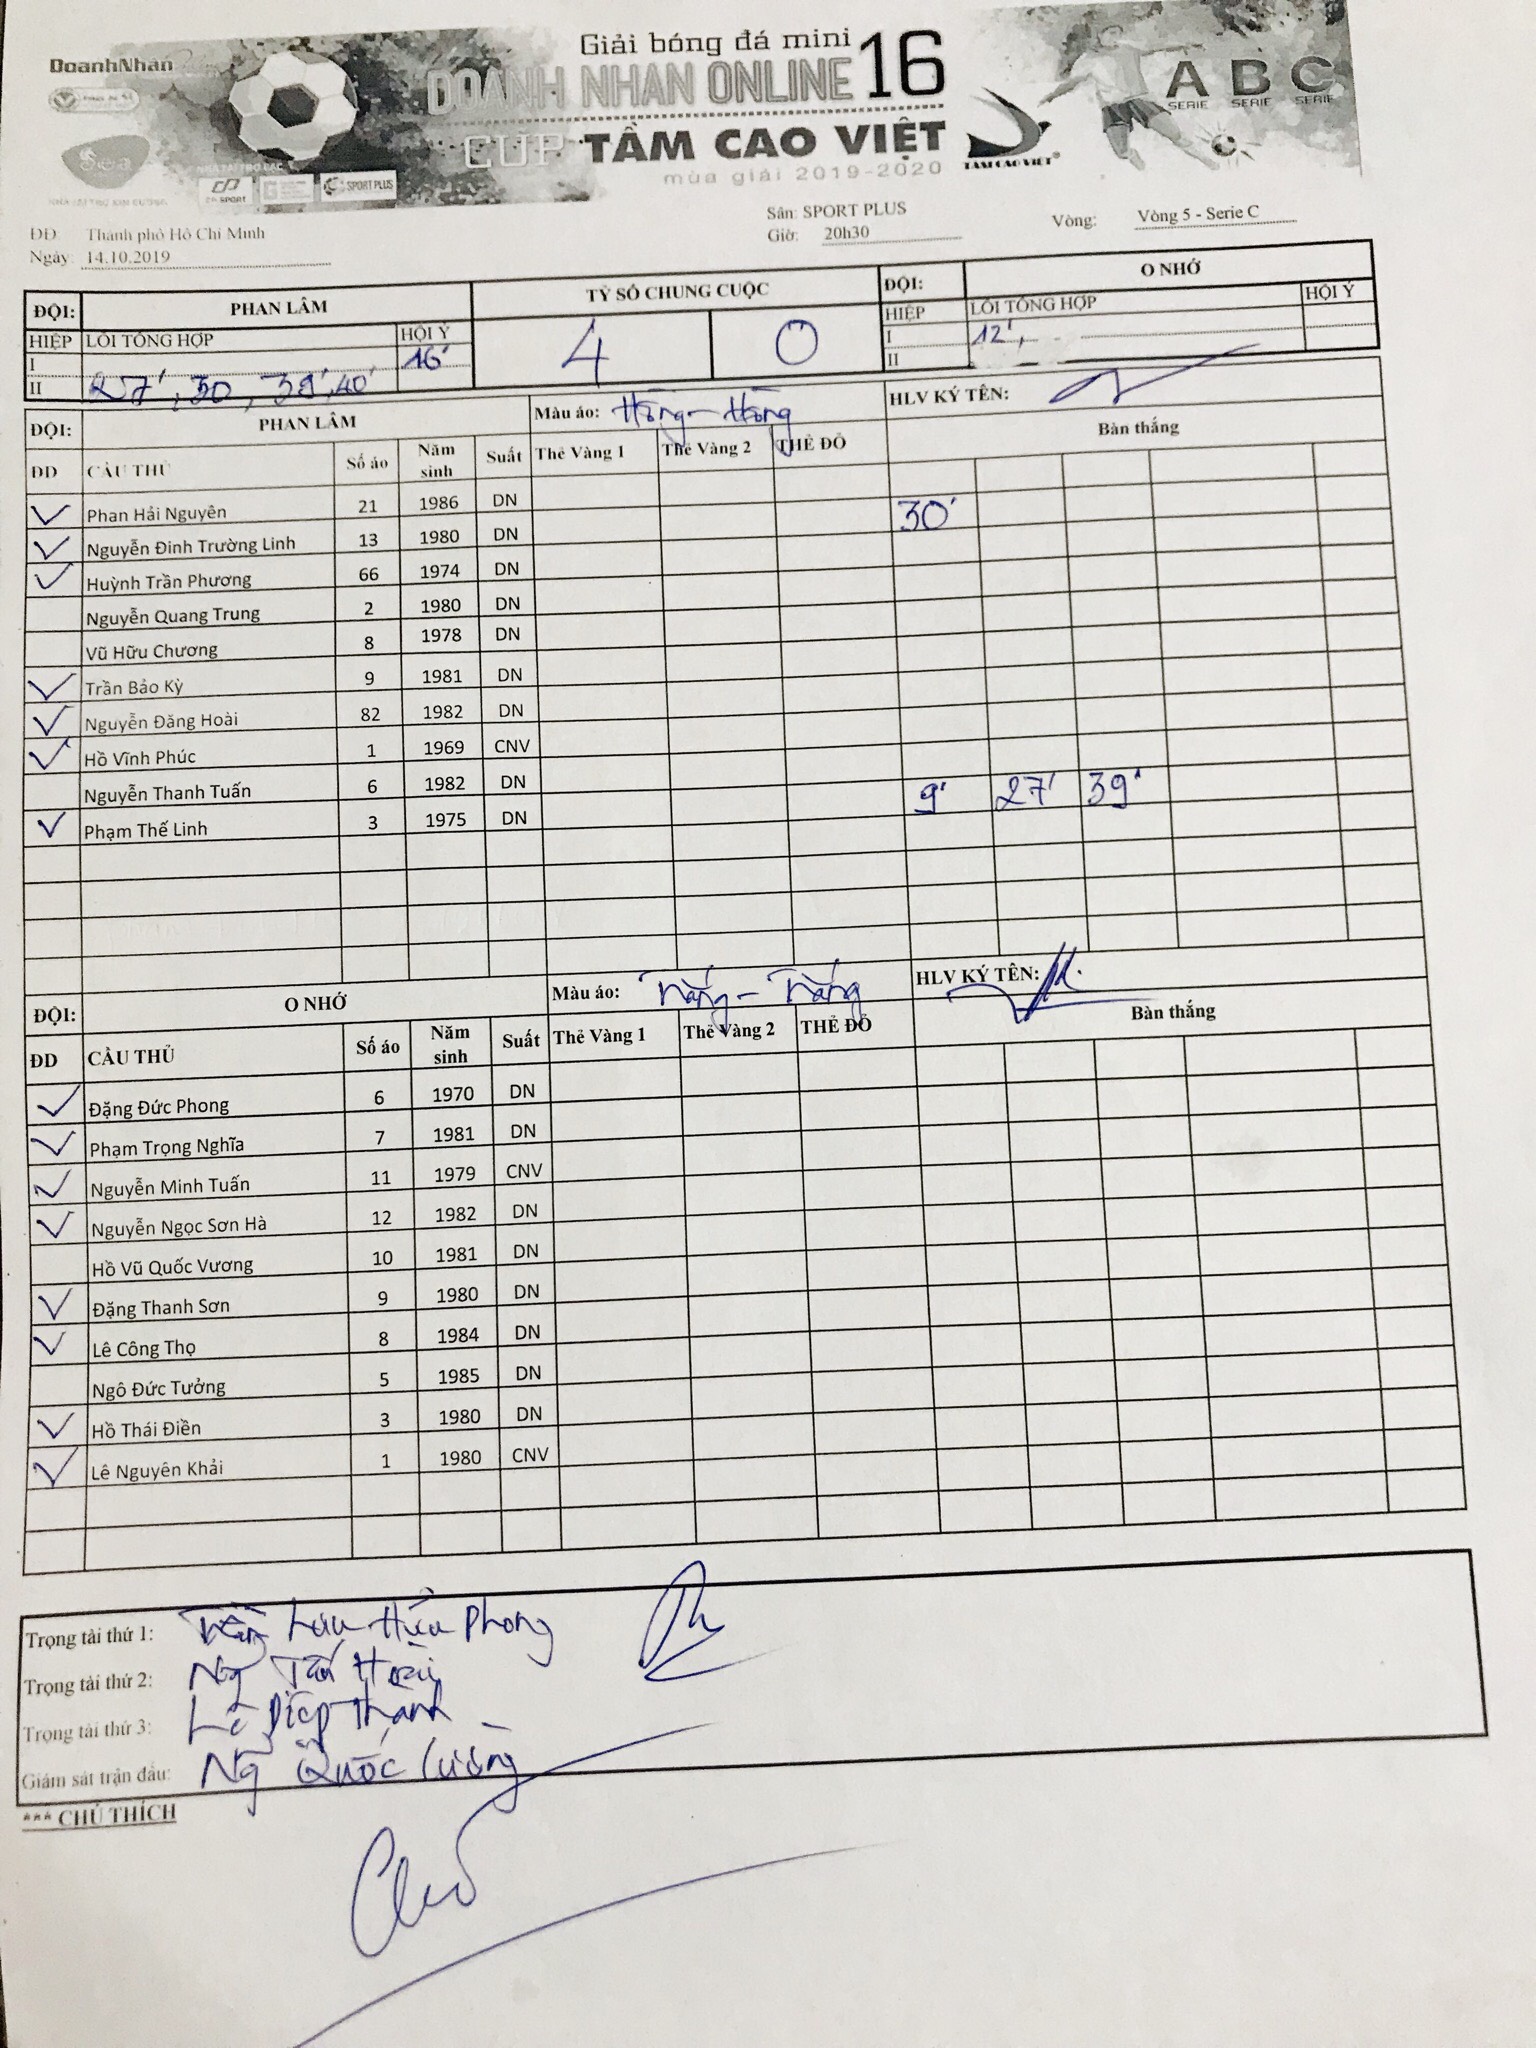 Giải bóng đá mini
DoanhNhân
DOANH NHAN ONLINE 16
CUP TẦM CAO VIỆT
mùa giải 2019-2020
TẦM CAO VIỆT
A B C
SERIE SERIE SERIE
SPORT PLUS
Sân: SPORT PLUS
ĐĐ: Thành phố Hồ Chí Minh
Giờ: 20h30 Vòng: Vòng 5 - Serie C
Ngày: 14.10.2019
ĐỘI: PHAN LÂM TỶ SỐ CHUNG CUỘC ĐỘI: O NHỚ
HIỆP LỖI TỔNG HỢP HỘI Ý 4 0 HIỆP LỖI TỔNG HỢP HỘI Ý
I 16' I 12',
II 27', 30, 39', 40' II
ĐỘI: PHAN LÂM Màu áo: Hồng - Hồng HLV KÝ TÊN:
ĐD CẦU THỦ Số áo Năm sinh Suất Thẻ Vàng 1 Thẻ Vàng 2 THẺ ĐỎ Bàn thắng
Phan Hải Nguyên 21 1986 DN 30'
Nguyễn Đình Trường Linh 13 1980 DN
Huỳnh Trần Phương 66 1974 DN
Nguyễn Quang Trung 2 1980 DN
Vũ Hữu Chương 8 1978 DN
Trần Bảo Kỳ 9 1981 DN
Nguyễn Đăng Hoài 82 1982 DN
Hồ Vĩnh Phúc 1 1969 CNV
Nguyễn Thanh Tuấn 6 1982 DN
Phạm Thế Linh 3 1975 DN 9' 27' 39'
ĐỘI: O NHỚ Màu áo: Trắng - Trắng HLV KÝ TÊN:
ĐD CẦU THỦ Số áo Năm sinh Suất Thẻ Vàng 1 Thẻ Vàng 2 THẺ ĐỎ Bàn thắng
Đặng Đức Phong 6 1970 DN
Phạm Trọng Nghĩa 7 1981 DN
Nguyễn Minh Tuấn 11 1979 CNV
Nguyễn Ngọc Sơn Hà 12 1982 DN
Hồ Vũ Quốc Vương 10 1981 DN
Đặng Thanh Sơn 9 1980 DN
Lê Công Thọ 8 1984 DN
Ngô Đức Tưởng 5 1985 DN
Hồ Thái Điền 3 1980 DN
Lê Nguyên Khải 1 1980 CNV
Trọng tài thứ 1: Trần Lưu Hữu Phong
Trọng tài thứ 2: Ng Tấn Hoài
Trọng tài thứ 3: Lê Diệp Thành
Giám sát trận đấu: Ng Quốc Cường
*** CHÚ THÍCH